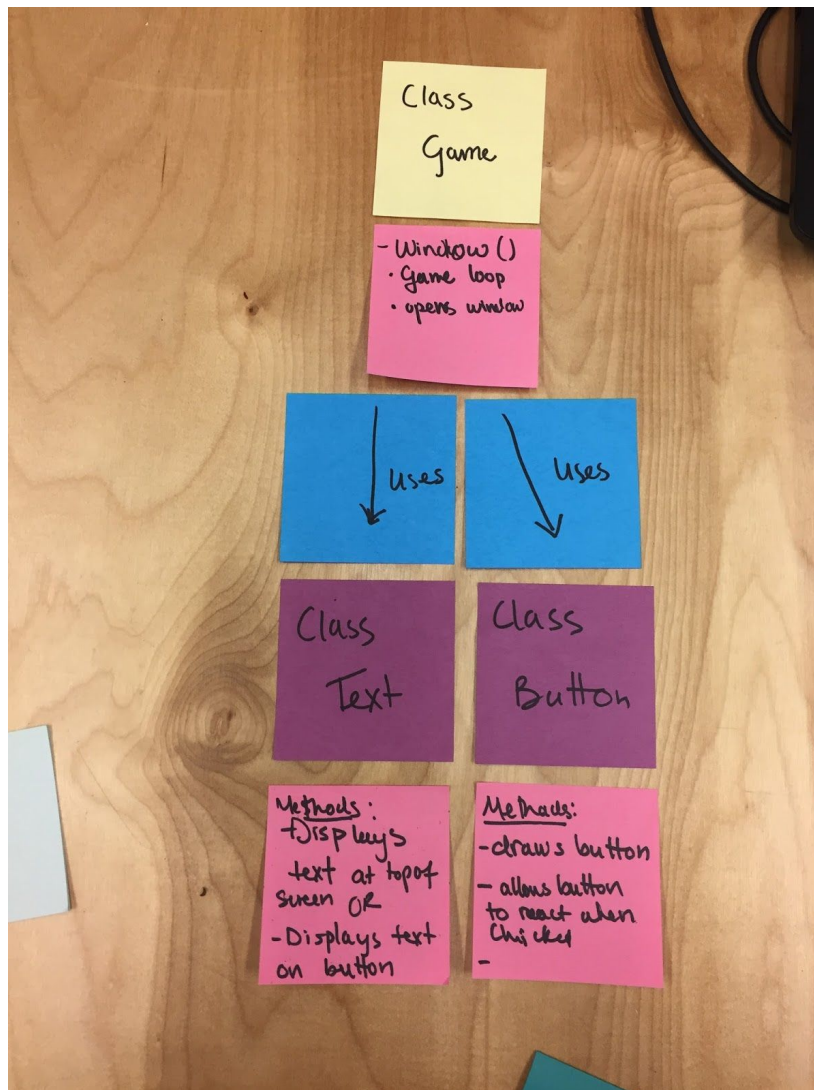 Class
Game
- Window ()
• Game loop
• opens window
uses
uses
Class
Text
Class
Button
Methods:
- Displays
text at top of
screen OR
- Displays text
on button
Methods:
- draws button
- allows button
to react when
-